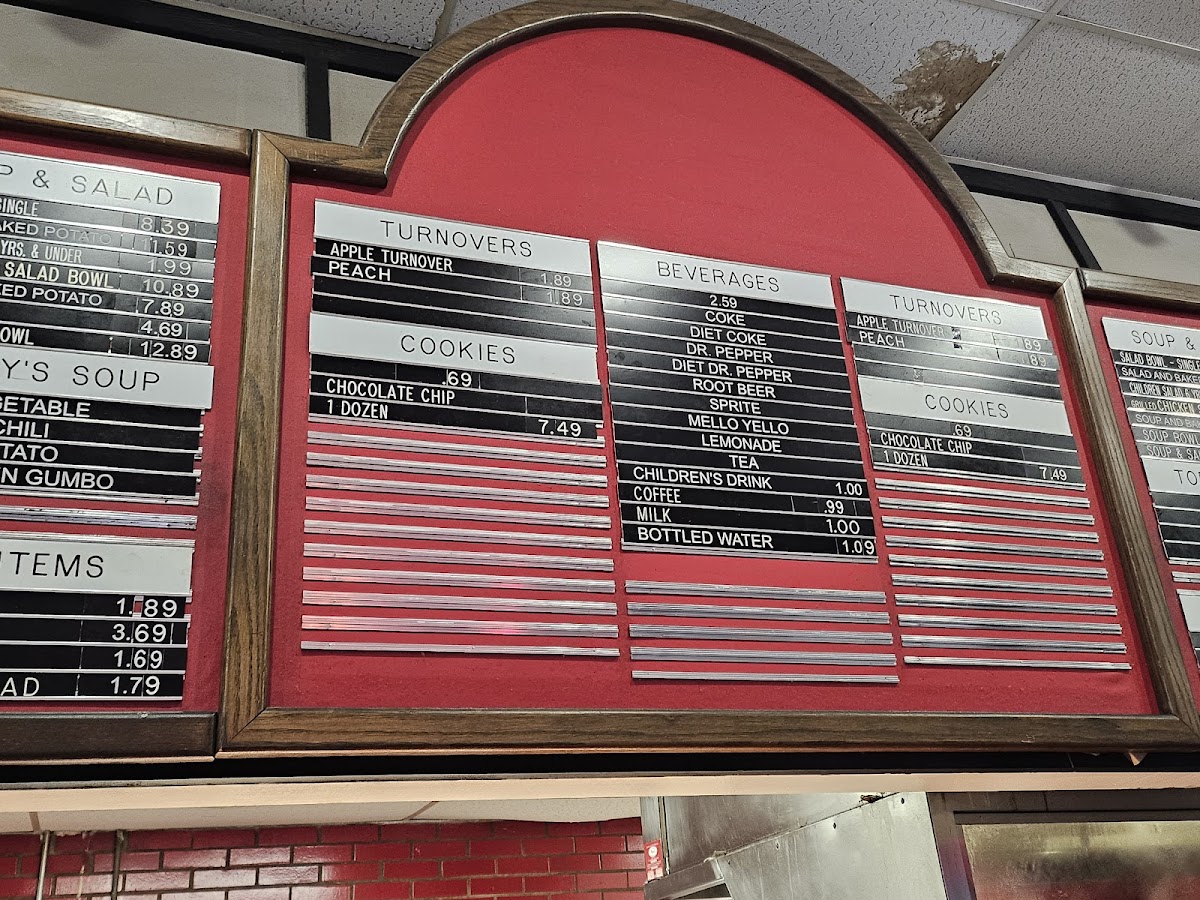 P & SALAD
SINGLE 8.39
AKED POTATO 11.59
YRS. & UNDER 1.99
SALAD BOWL 10.89
KED POTATO 7.89
4.69
OWL 12.89
Y'S SOUP
GETABLE
CHILI
TATO
N GUMBO
ITEMS
1.89
3.69
1.69
AD 1.79
TURNOVERS
APPLE TURNOVER 1.89
PEACH 1.89
COOKIES
.69
CHOCOLATE CHIP
1 DOZEN 7.49
BEVERAGES
2.59
COKE
DIET COKE
DR. PEPPER
DIET DR. PEPPER
ROOT BEER
SPRITE
MELLO YELLO
LEMONADE
TEA
CHILDREN'S DRINK 1.00
COFFEE .99
MILK 1.00
BOTTLED WATER 1.09
TURNOVERS
APPLE TURNOVER 1.89
PEACH 1.89
COOKIES
.69
CHOCOLATE CHIP
1 DOZEN 7.49
SOUP &
SALAD BOWL - SINGLE
SALAD AND BAKE
CHILDREN SALAD & 
GRILLED CHICKEN
SOUP AND BA
SOUP BOWL
SOUP & SA
TO